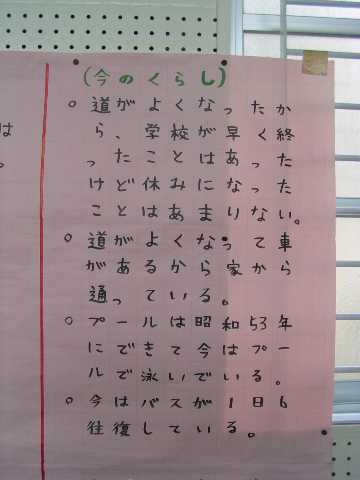 (今のくらし)
○道がよくなったか
ら、学校が早く終
ったことはあった
けど休みになった
ことはあまりない。
○道がよくなって車
があるから家から
通っている。
○プールは昭和53年
にできて今はプー
ルで泳いでいる。
○今はバスが1日6
往復している。
は
。